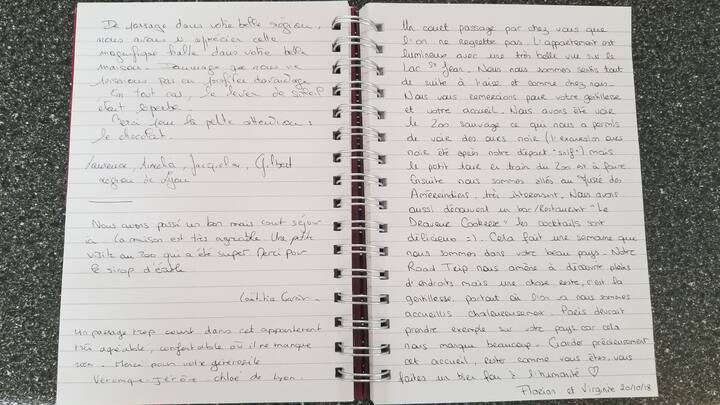 De passage dans votre belle région,
nous avons pu apprécier cette
magnifique halte dans votre belle
maison. Dommage que nous ne
puissions pas en profiter davantage
En tout cas, le lever de soleil
était superbe
Merci pour la petite attention :
le chocolat.
Laurence, Jacqueline, Gilbert
région de Lyon
Nous avons passé un bon mais court séjour
ici. La maison est très agréable. Une petite
visite au zoo qui a été super. Merci pour
le sirop d'érable
Laëtitia
Un passage trop court dans cet appartement
très agréable, confortable où il ne manque
rien. Merci pour votre générosité
Véronique - Jérôme - Chloé de Lyon.
Un court passage par chez vous que
l'on ne regrette pas. L'appartement est
lumineux avec une très belle vue sur le
Lac St Jean. Nous nous sommes sentis tout
de suite à l'aise et comme chez nous.
Nous vous remercions pour votre gentillesse
et votre accueil. Nous avons été voir
le Zoo sauvage ce qui nous a permis
de voir des ours noir (l'excursion ours
noir été après notre départ "snif") mais
le petit tour en train du Zoo est à faire.
Ensuite nous sommes allés au Musée des
Amérindiens, très intéressant. Nous avons
aussi découvert un bar/Restaurant "Le
Draveur Cookerie" les cocktails sont
délicieux =). Cela fait une semaine que
nous sommes dans votre beau pays. Notre
Road Trip nous amène à découvrir pleins
d'endroits mais une chose reste, c'est la
gentillesse. partout où l'on a nous sommes
accueillis chaleureusement. Paris devrait
prendre exemple sur votre pays car cela
nous manque beaucoup. Garder précieusement
cet accueil, rester comme vous êtes, vous
faites un bien fou à l'humanité ♡
Florian et Virginie 20/10/18